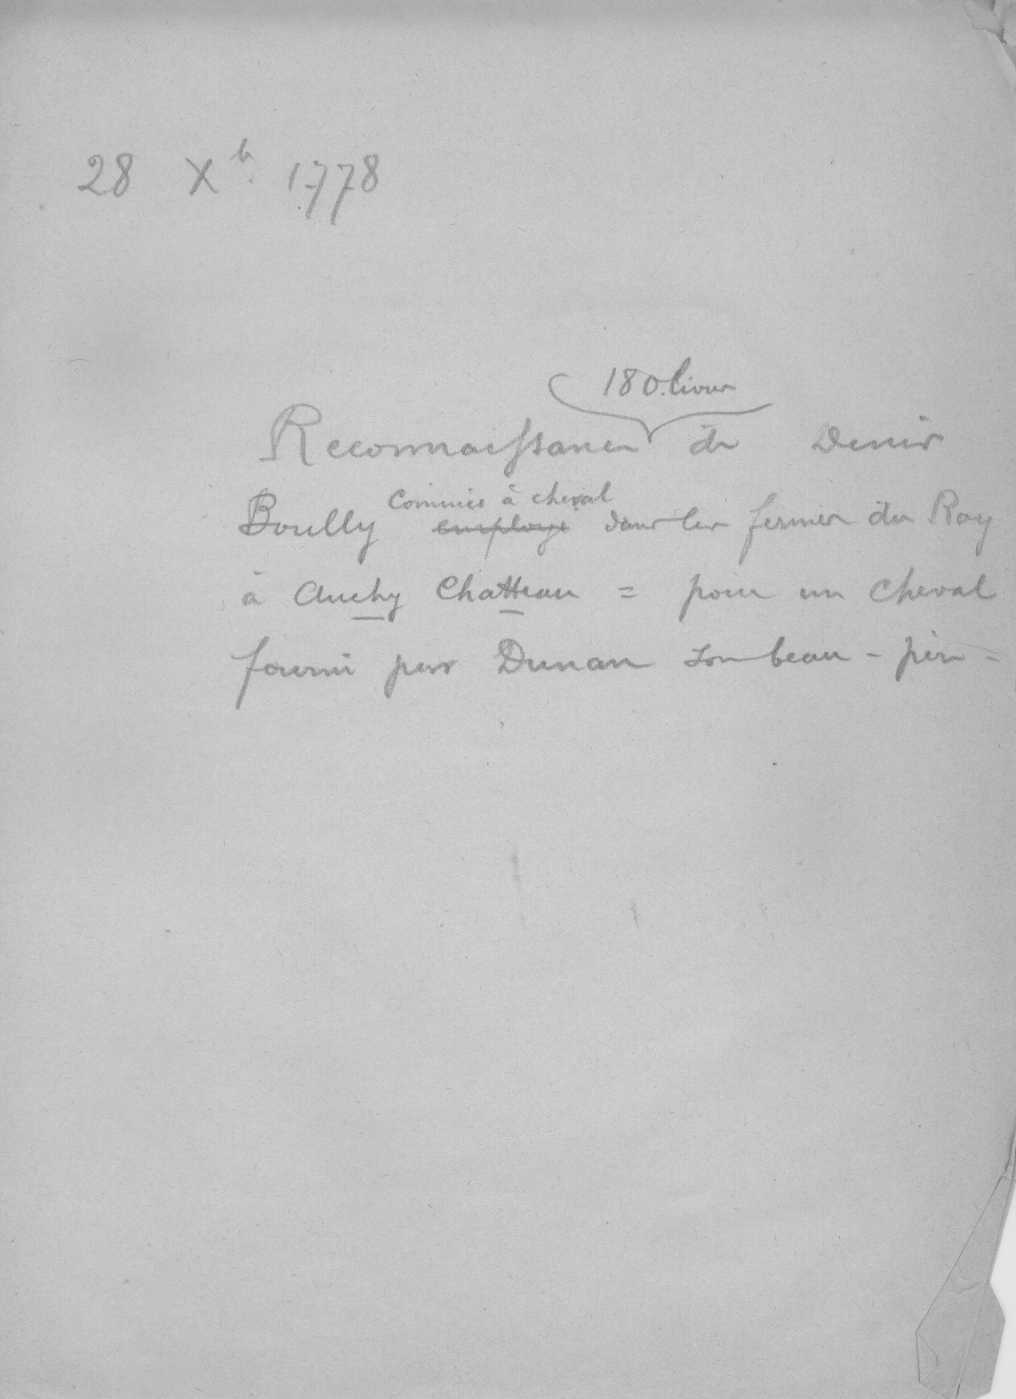 28 Xb. 1778
180 livres
Reconnaissance de Denis
Boully Commis à cheval employé dans les fermes du Roy
à Auchy Chatteau = pour un cheval
fourni par Dunan son beau-père-